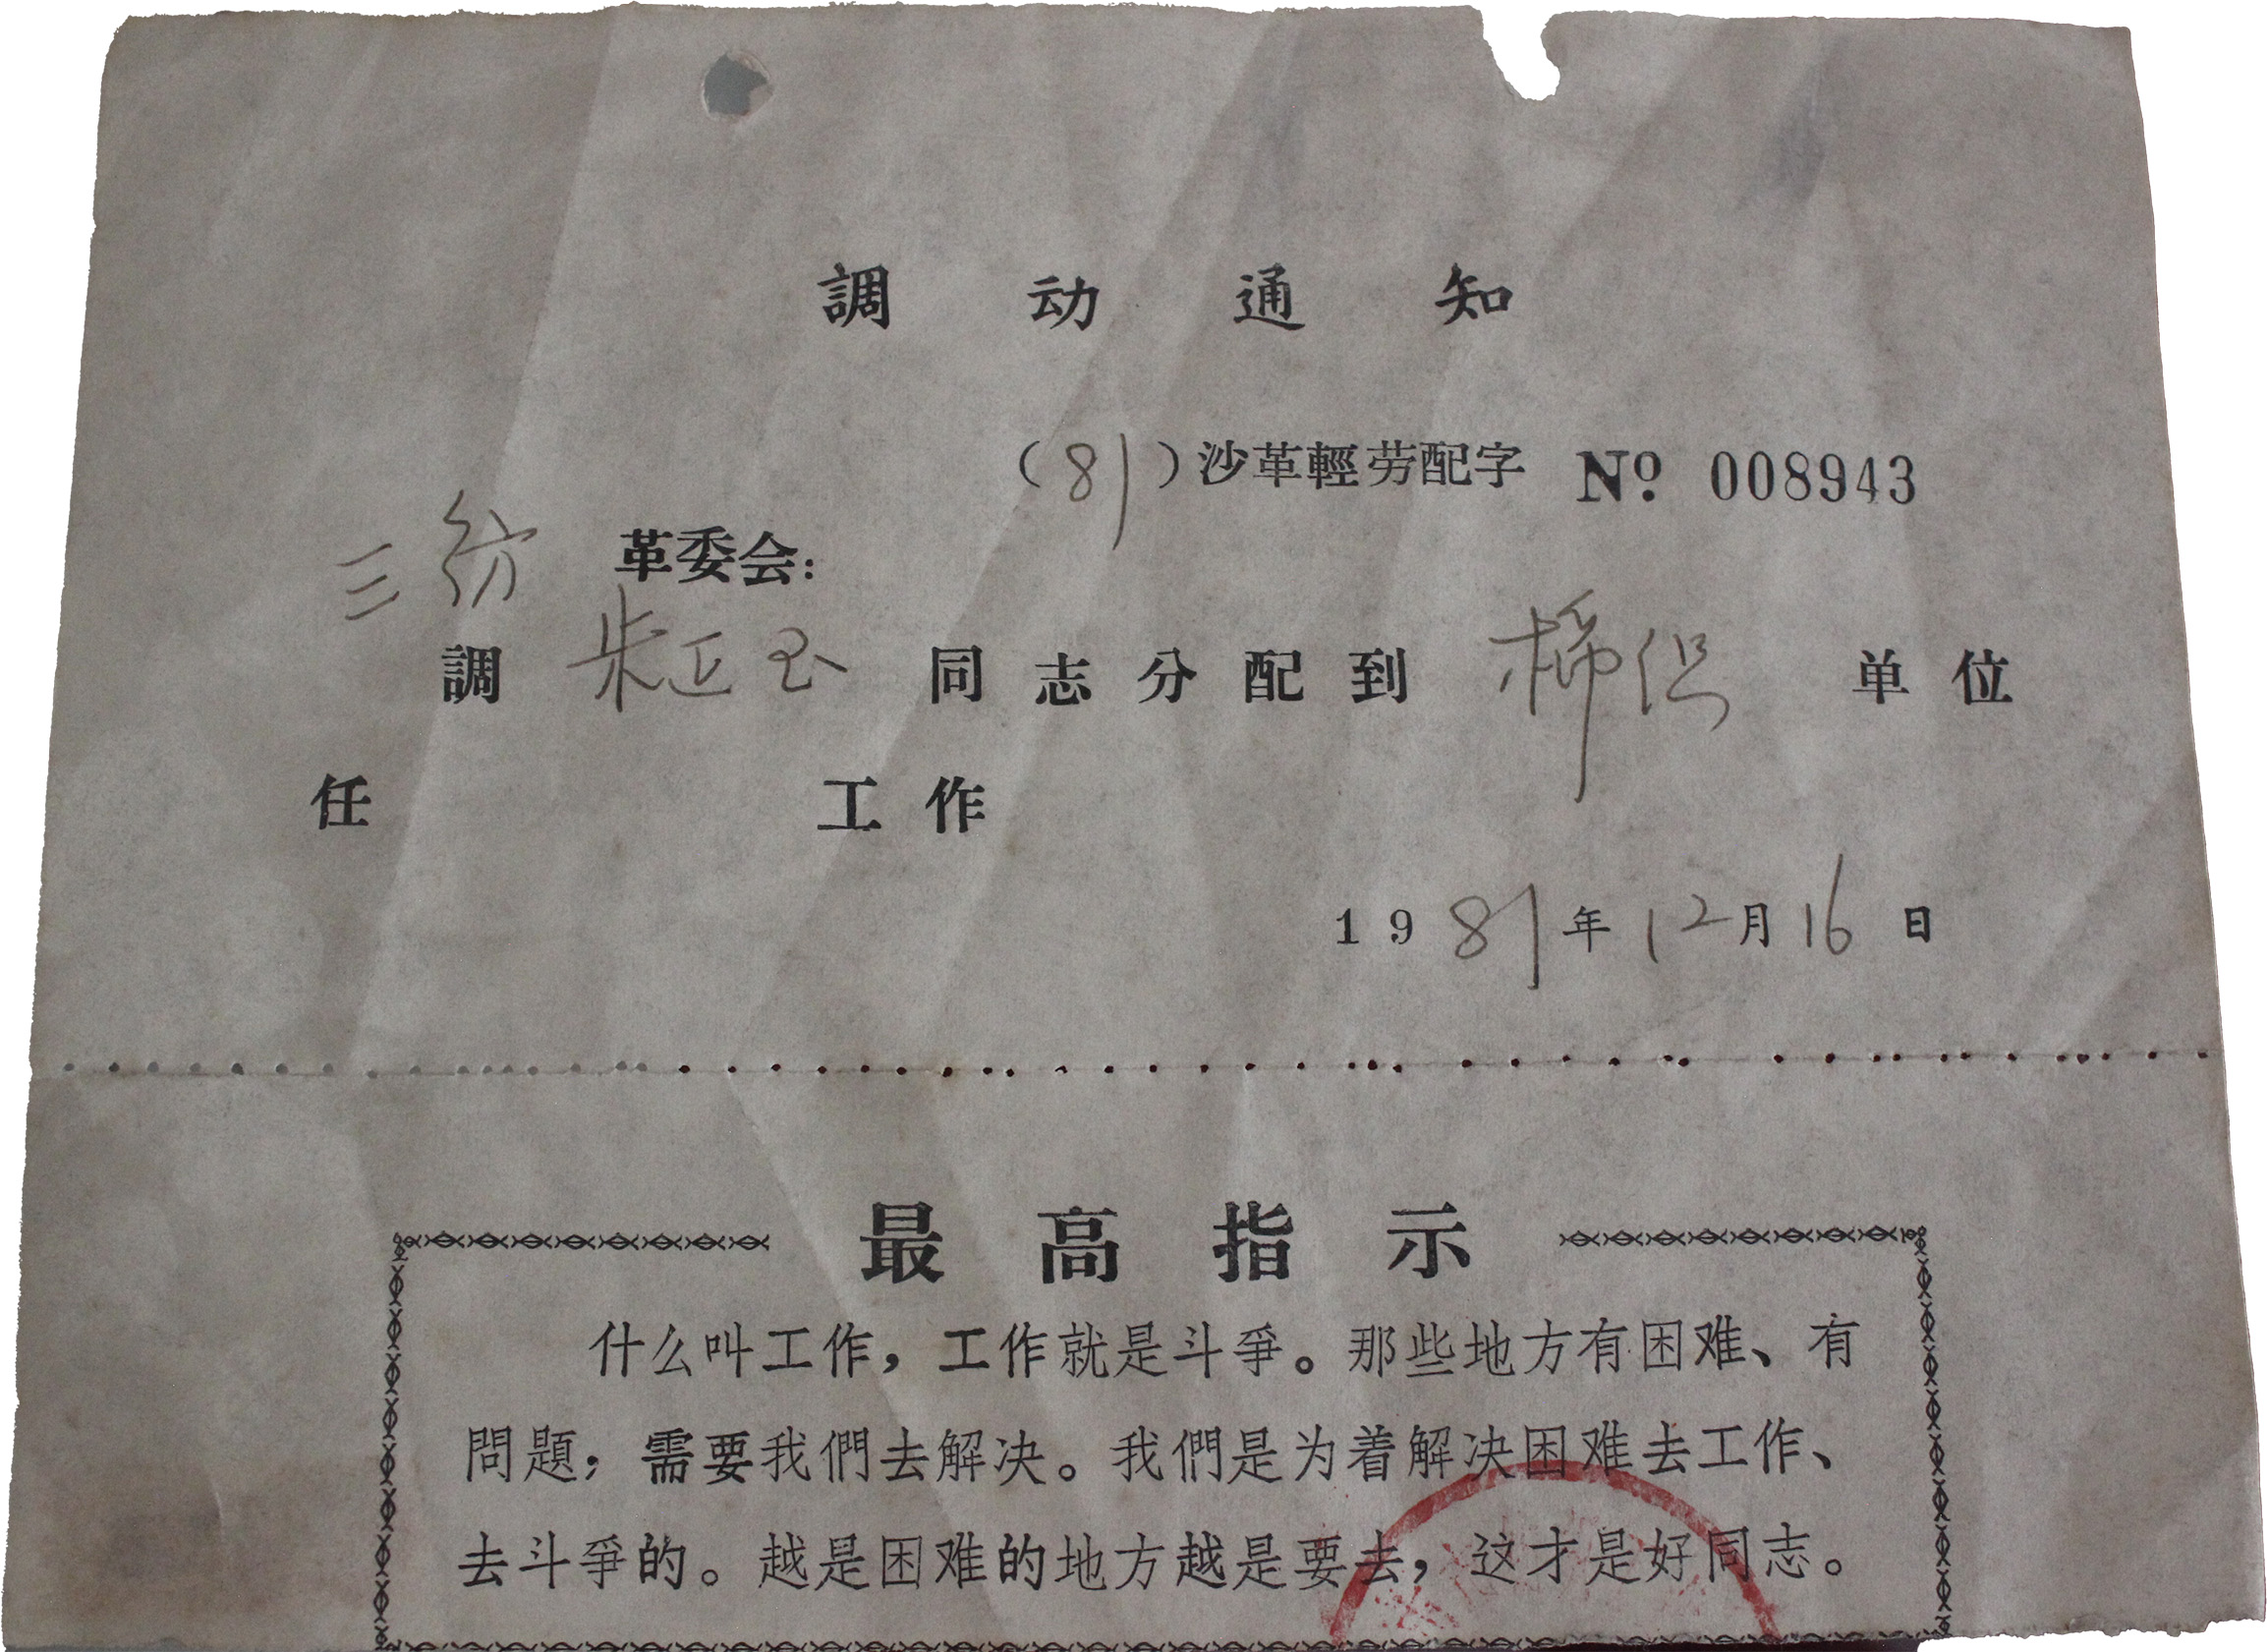 調动通知
（81）沙革輕劳配字 No. 008943
三纺 革委会：
調 朱正玉 同志分配到 棉织 单位
任 工作
1981年12月16日
最高指示
什么叫工作，工作就是斗爭。那些地方有困难、有
問題，需要我們去解决。我們是为着解决困难去工作、
去斗爭的。越是困难的地方越是要去，这才是好同志。